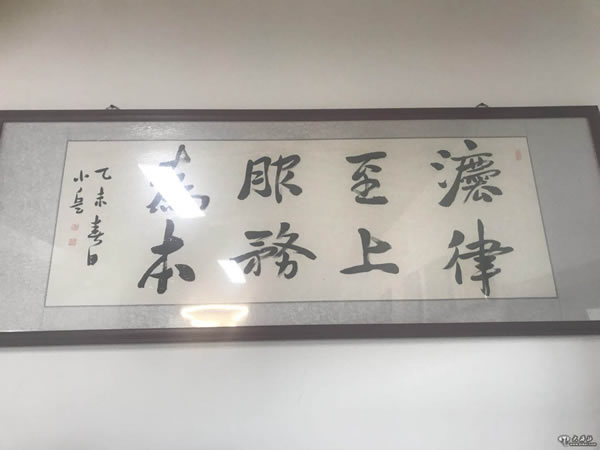 灋律
至上
服務
為本
乙未春日
小